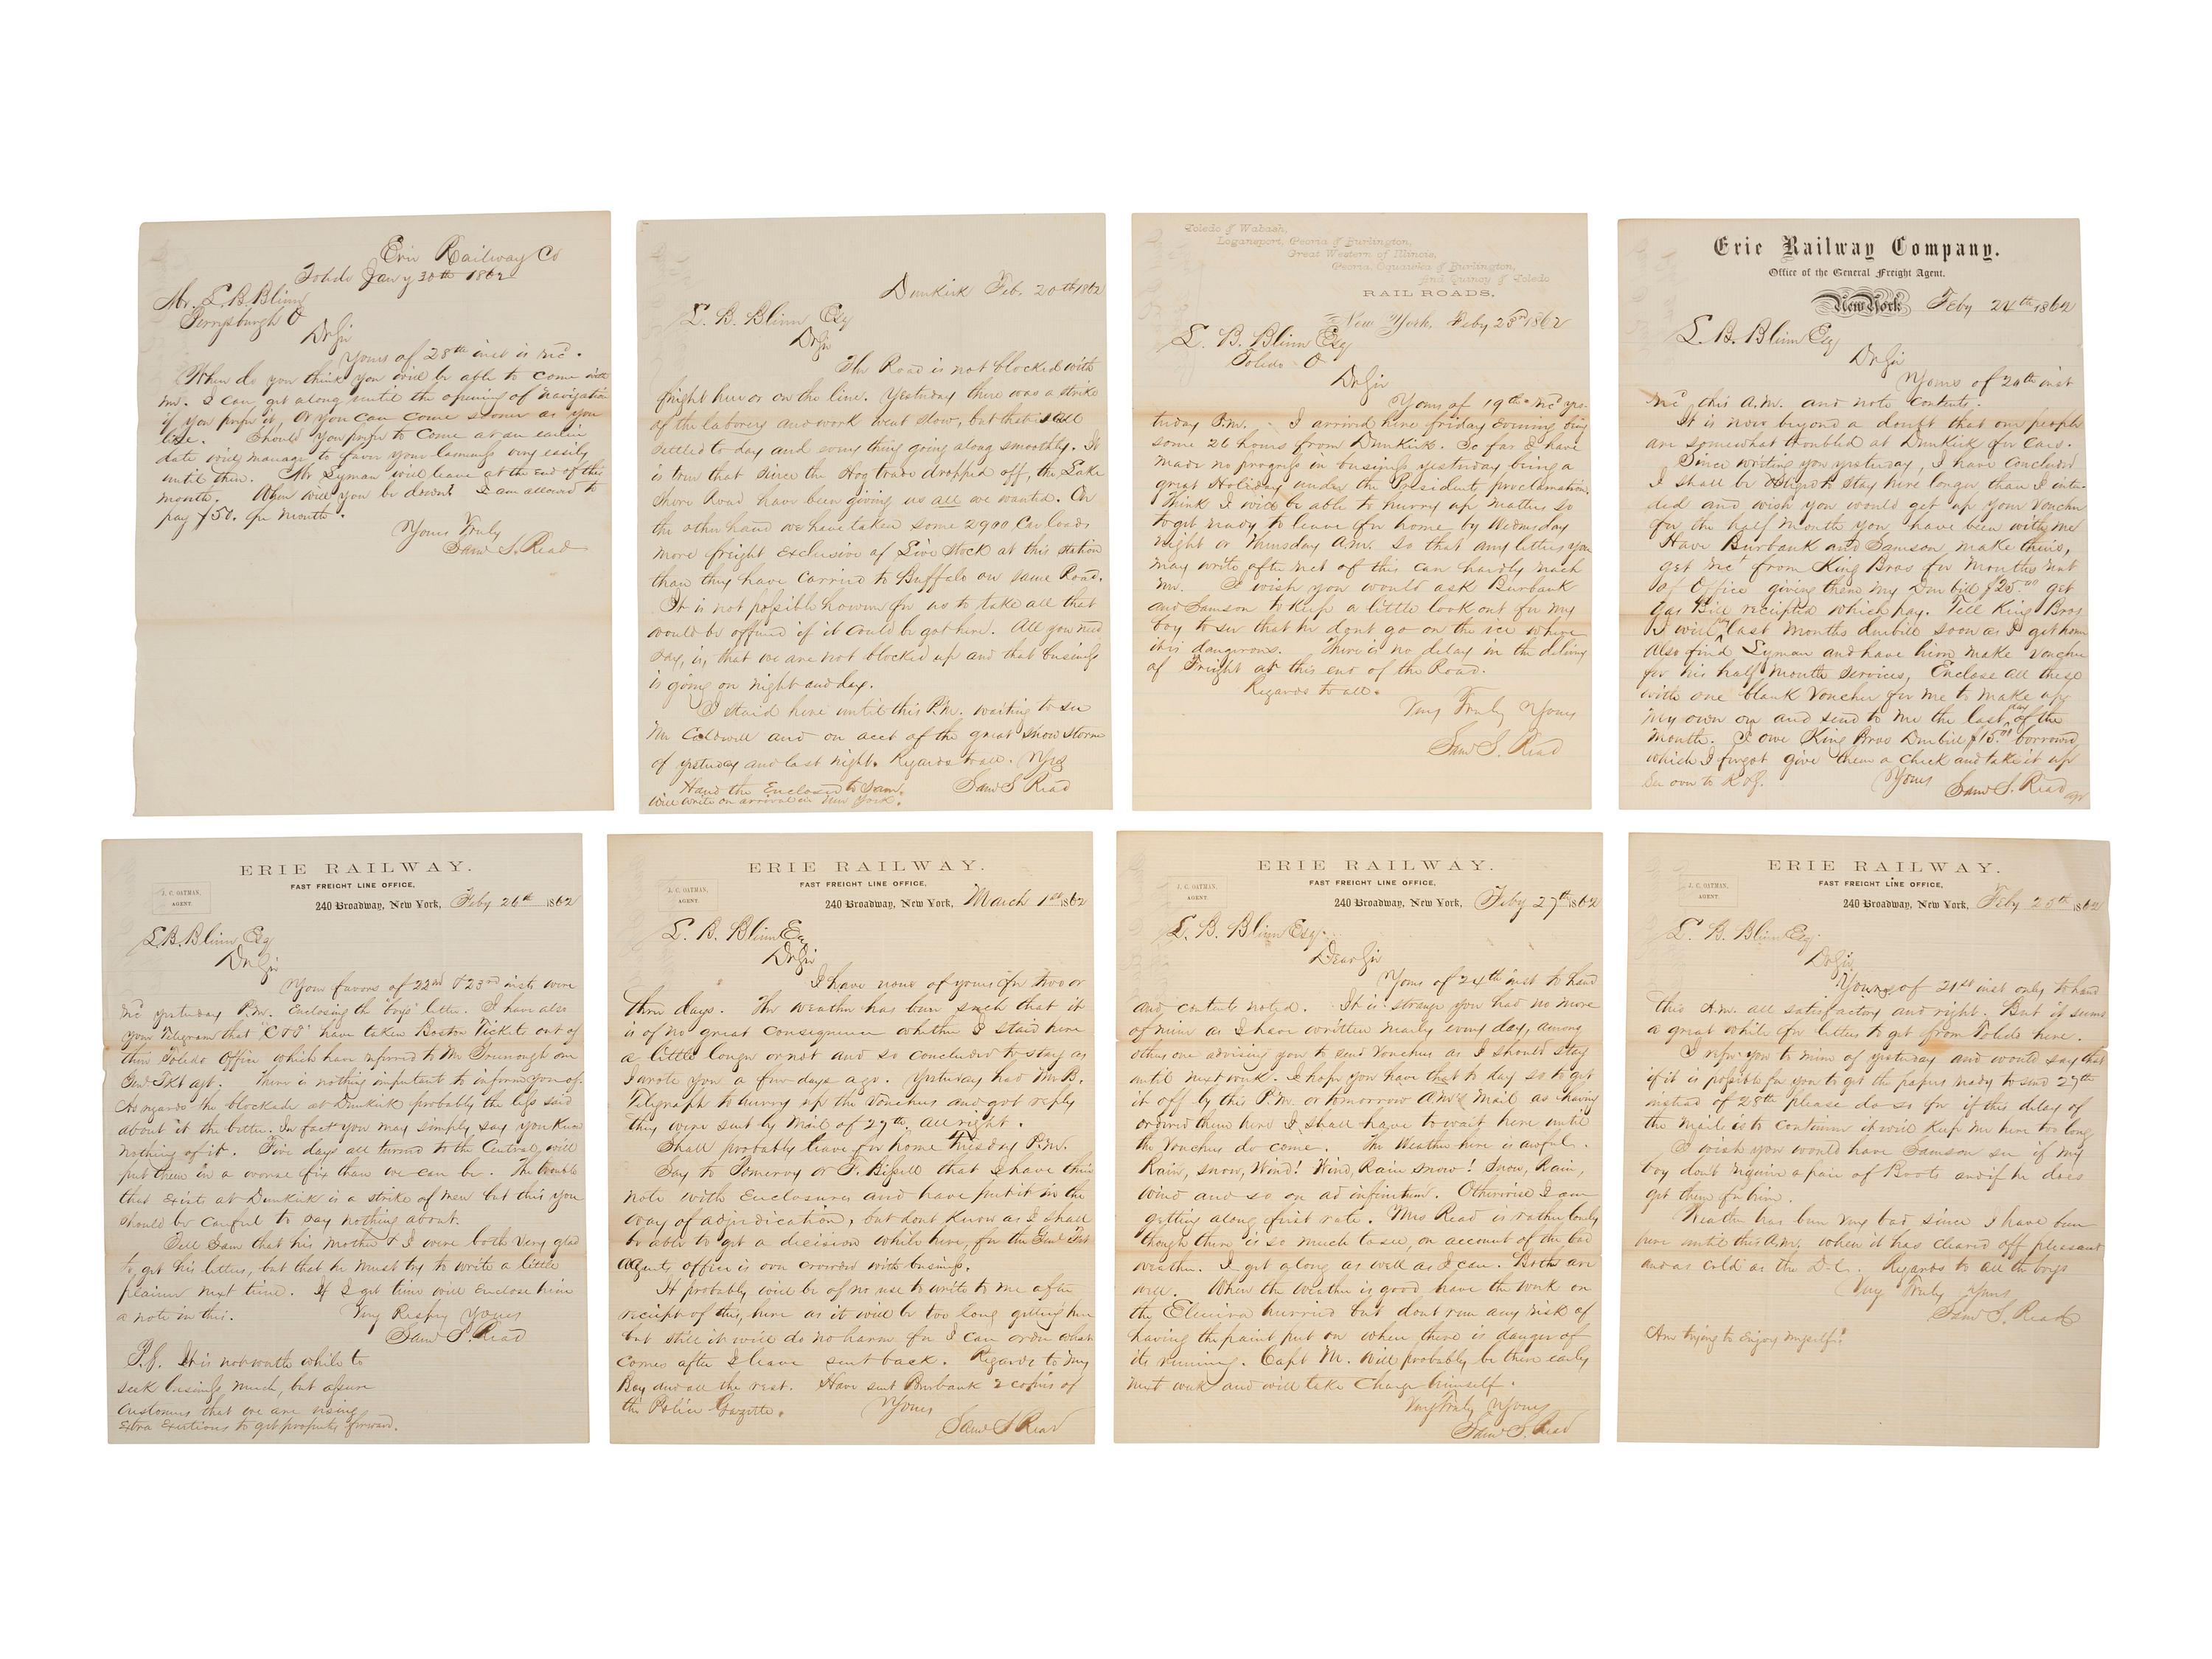 Erie Railway Co
Toledo Jany 30th 1862
Mr. L. B. Blinn
Perrysburgh O
Dr Sir
Yours of 28th inst is rec'd.
When do you think you will be able to come with
me. I can get along until the opening of navigation
if you prefer it, or you can come sooner as you
like. Should you prefer to come at an earlier
date will manage to favor your coming very easily
until then. Mr Lyman will leave at the end of this
month. When will you be down? I am allowed to
pay $50. per month.
Yours Truly
Saml S. Read
Dunkirk Feb. 20th 1862
L. B. Blinn Esq
Dr Sir
The Road is not blocked with
freight here or on the line. Yesterday there was a strike
of the laborers and work went slow, but that is all
settled to day and every thing going along smoothly. It
is true that since the Hog trade dropped off, the Lake
Shore Road have been giving us all we wanted. On
the other hand we have taken some 2900 Car loads
more freight exclusive of Live Stock at this station
than they have carried to Buffalo on same Road.
It is not possible however for us to take all that
would be offered if it could be got here. All you need
say, is, that we are not blocked up and that business
is going on night and day.
I staid here until this P.M. waiting to see
Mr Caldwell and on acct of the great Snow Storm
of yesterday and last night. Regards to all. Yrs
Hand the Enclosed to Sam. Saml S Read
Will write on arrival in New York.
Toledo & Wabash,
Logansport, Peoria & Burlington,
Great Western of Illinois,
Peoria, Oquawka & Burlington,
and Quincy & Toledo
RAIL ROADS,
New York, Feby 23rd 1862
L. B. Blinn Esq
Toledo O
Dr Sir
Yours of 19th rec'd yes-
terday P.M. I arrived here friday Evening being
some 26 hours from Dunkirk. So far I have
made no progress in business yesterday being a
great Holiday under the Presidents proclamation.
Think I will be able to hurry up matters so
to get ready to leave for home by Wednesday
night or Thursday A.M. so that any letters you
may write after rect of this can hardly reach
me. I wish you would ask Burbank
and Samson to keep a little look out for my
boy to see that he dont go on the ice where
it is dangerous. There is no delay in the delivery
of Freight at this end of the Road.
Regards to all.
Very Truly Yours
Saml S. Read
Erie Railway Company.
Office of the General Freight Agent.
New York Feby 24th 1862
L. B. Blinn Esq
Dr Sir
Yours of 20th inst
rec'd this A.M. and note contents.
It is now beyond a doubt that our people
are somewhat troubled at Dunkirk for cars.
Since writing you yesterday, I have concluded
I shall be obliged to stay here longer than I inten-
ded and wish you would get up your voucher
for the half month you have been with me
Have Burbank and Samson make theirs,
get rec't from King Bros for months rent
of Office giving them my Due bill $25.00 get
Gas Bill receipted which pay. Tell King Bros
I will pay last months duebill soon as I get home
Also find Lyman and have him make voucher
for his half month services, Enclose all these
with one blank Voucher for me to make up
my own on and send to me the last day of the
month. I owe King Bros Due bill $15.00 borrowed
which I forgot give them a check and take it up
Yours Saml S. Read
ERIE RAILWAY.
FAST FREIGHT LINE OFFICE,
J. C. OATMAN,
AGENT.
240 Broadway, New York, Feby 26th 1862
L. B. Blinn Esq
Dr Sir
Your favors of 22nd & 23rd insts were
rec'd yesterday P.M. Enclosing the boys' letter. I have also
your Telegram that "C & T" have taken Boston Tickets out of
their Toledo Office which have referred to Mr Greenough our
Genl Tkt agt. There is nothing important to inform you of.
As regards the blockade at Dunkirk probably the less said
about it the better. In fact you may simply say you know
nothing of it. Five days all turned to the Central, will
put them in a worse fix than we can be. The trouble
that exist at Dunkirk is a strike of men but this you
should be careful to say nothing about.
Tell Sam that his Mother & I were both very glad
to get his letters, but that he must try to write a little
plainer next time. If I get time will enclose him
a note in this. Very Respy Yours
Saml S. Read
P.S. It is not worth while to
seek business much, but assure
customers that we are using
extra exertions to get property forward.
ERIE RAILWAY.
FAST FREIGHT LINE OFFICE,
J. C. OATMAN,
AGENT.
240 Broadway, New York, March 1st 1862
L. B. Blinn Esq
Dr Sir
I have none of yours for two or
three days. The weather has been such that it
is of no great consequence whether I staid here
a little longer or not and so concluded to stay as
I wrote you a few days ago. Yesterday had Mr B.
Telegraph to hurry up the vouchers and got reply
they were sent by Mail of 27th. All right.
Shall probably leave for home Tuesday P.M.
Say to Pomeroy or F. Bissell that I have their
note with Enclosures and have put it in the
way of adjudication, but dont know as I shall
be able to get a decision while here, for the Genl Frt
Agents, office is over crowded with business.
It probably will be of no use to write to me after
receipt of this, here as it will be too long getting here
but still it will do no harm for I can order what
comes after I leave sent back. Regards to my
Boy and all the rest. Have sent Burbank 2 copies of
the Police Gazette. Yours
Saml S Read
ERIE RAILWAY.
FAST FREIGHT LINE OFFICE,
J. C. OATMAN,
AGENT.
240 Broadway, New York, Feby 27th 1862
L. B. Blinn Esq.
Dear Sir
Yours of 24th inst to hand
and contents noted. It is strange you had no more
of mine as I have written nearly every day, among
others one advising you to send vouchers as I should stay
until next week. I hope you have that to day so to get
it off by this P.M. or tomorrow A.M's Mail as having
ordered them here I shall have to wait here until
the Vouchers do come. The Weather here is awful.
Rain, snow, Wind! Wind, Rain snow! Snow, Rain,
wind and so on ad infinitum. Otherwise I am
getting along first rate. Mrs Read is rather lonely
though there is so much to see, on account of the bad
weather. I get along as well as I can. Both are
well. When the weather is good have the work on
the Elmira hurried but dont run any risk of
having the paint put on when there is danger of
its running. Capt M. will probably be there early
next week and will take charge himself.
Very Truly Yours
Saml S. Read
ERIE RAILWAY.
FAST FREIGHT LINE OFFICE,
J. C. OATMAN,
AGENT.
240 Broadway, New York, Feby 25th 1862
L. B. Blinn Esq.
Dr Sir
Yours of 21st inst only to hand
this A.M. all satisfactory and right. But it seems
a great while for letters to get from Toledo here.
I refer you to mine of yesterday and would say that
if it is possible for you to get the papers ready to send 27th
instead of 28th please do so for if this delay of
the Mail is to continue it will keep me here too long
I wish you would have Samson see if my
boy dont require a pair of Boots and if he does
get them for him.
Weather has been very bad since I have been
here until this A.M. when it has cleared off pleasant
and as cold as the D-l. Regards to all the boys
Very Truly Yours
Saml S. Read
Am trying to Enjoy myself!!